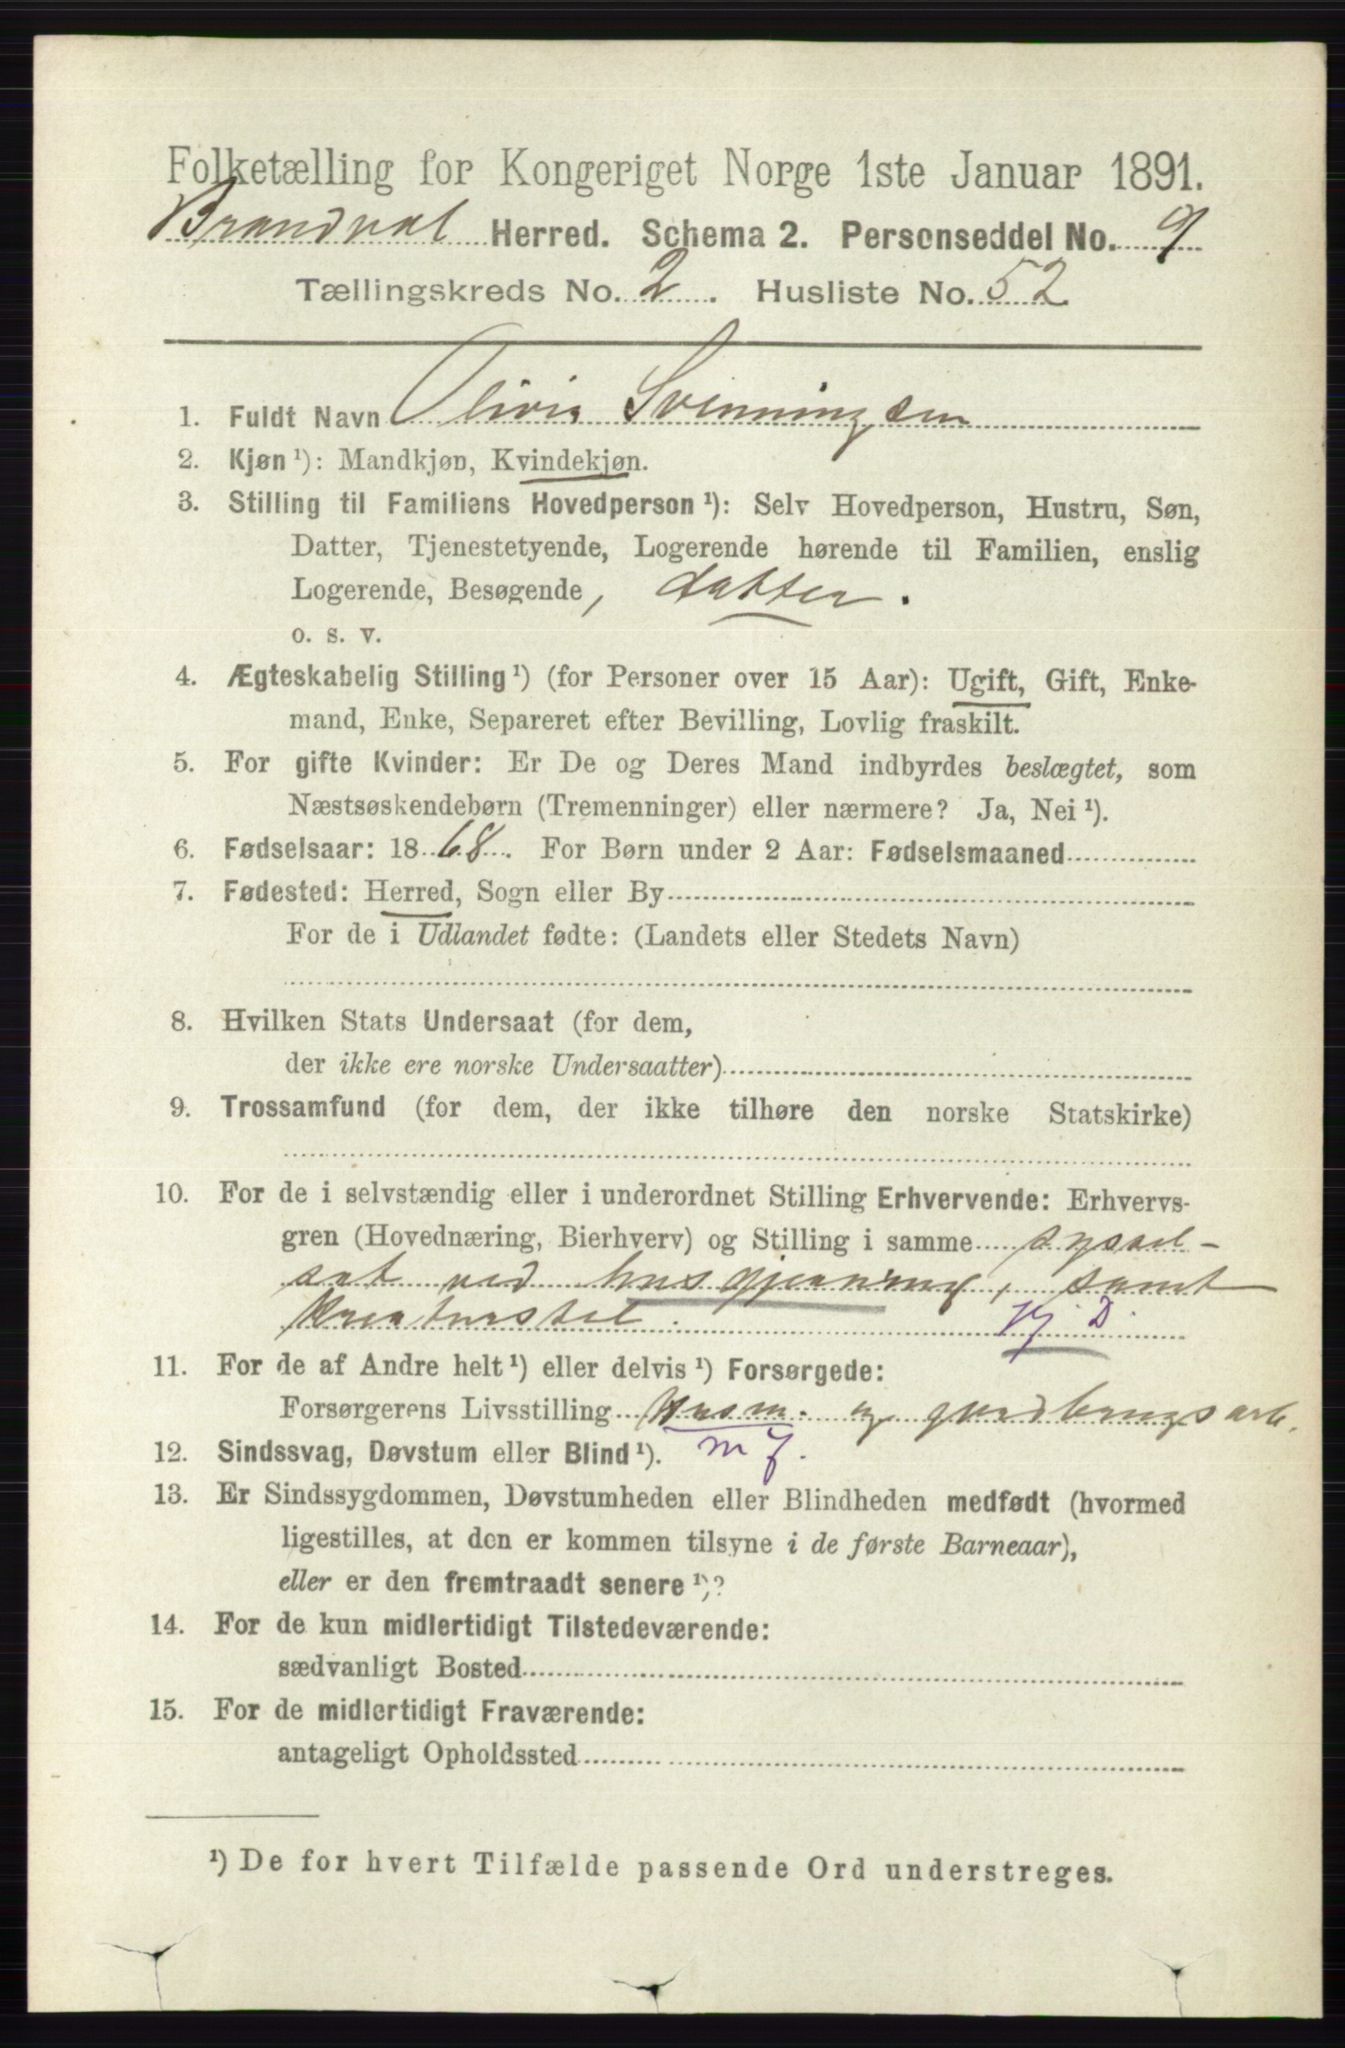 Folketælling for Kongeriget Norge 1ste Januar 1891.
Brandval Herred. Schema 2. Personseddel No. 9
Tællingskreds No. 2. Husliste No. 52
1. Fuldt Navn Olivia Svenningsen
2. Kjøn ¹): Mandkjøn, Kvindekjøn.
3. Stilling til Familiens Hovedperson ¹): Selv Hovedperson, Hustru, Søn,
Datter, Tjenestetyende, Logerende hørende til Familien, enslig
Logerende, Besøgende, datter.
o. s. v.
4. Ægteskabelig Stilling ¹) (for Personer over 15 Aar): Ugift, Gift, Enke-
mand, Enke, Separeret efter Bevilling, Lovlig fraskilt.
5. For gifte Kvinder: Er De og Deres Mand indbyrdes beslægtet, som
Næstsøskendebørn (Tremenninger) eller nærmere? Ja, Nei ¹).
6. Fødselsaar: 1868. For Børn under 2 Aar: Fødselsmaaned
7. Fødested: Herred, Sogn eller By
For de i Udlandet fødte: (Landets eller Stedets Navn)
8. Hvilken Stats Undersaat (for dem,
der ikke ere norske Undersaatter)
9. Trossamfund (for dem, der ikke tilhøre den norske Statskirke)
10. For de i selvstændig eller i underordnet Stilling Erhvervende: Erhvervs-
gren (Hovednæring, Bierhverv) og Stilling i samme syssel-
sat ved husgjerning, samt
kreaturstel. Hj. D.
11. For de af Andre helt ¹) eller delvis ¹) Forsørgede:
Forsørgerens Livsstilling Husm. og jordbrugsarb.
12. Sindssvag, Døvstum eller Blind ¹). m f.
13. Er Sindssygdommen, Døvstumheden eller Blindheden medfødt (hvormed
ligestilles, at den er kommen tilsyne i de første Barneaar),
eller er den fremtraadt senere ¹)?
14. For de kun midlertidigt Tilstedeværende:
sædvanligt Bosted
15. For de midlertidigt Fraværende:
antageligt Opholdssted
¹) De for hvert Tilfælde passende Ord understreges.